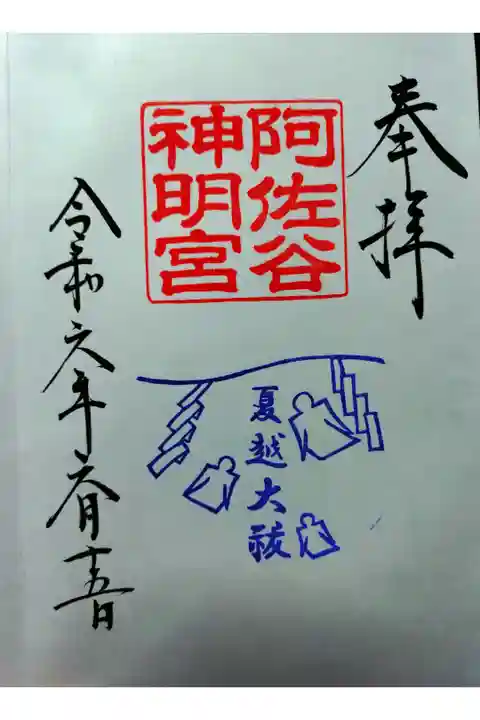 奉拝
阿佐谷
神明宮
夏越大祓
令和六年六月十五日